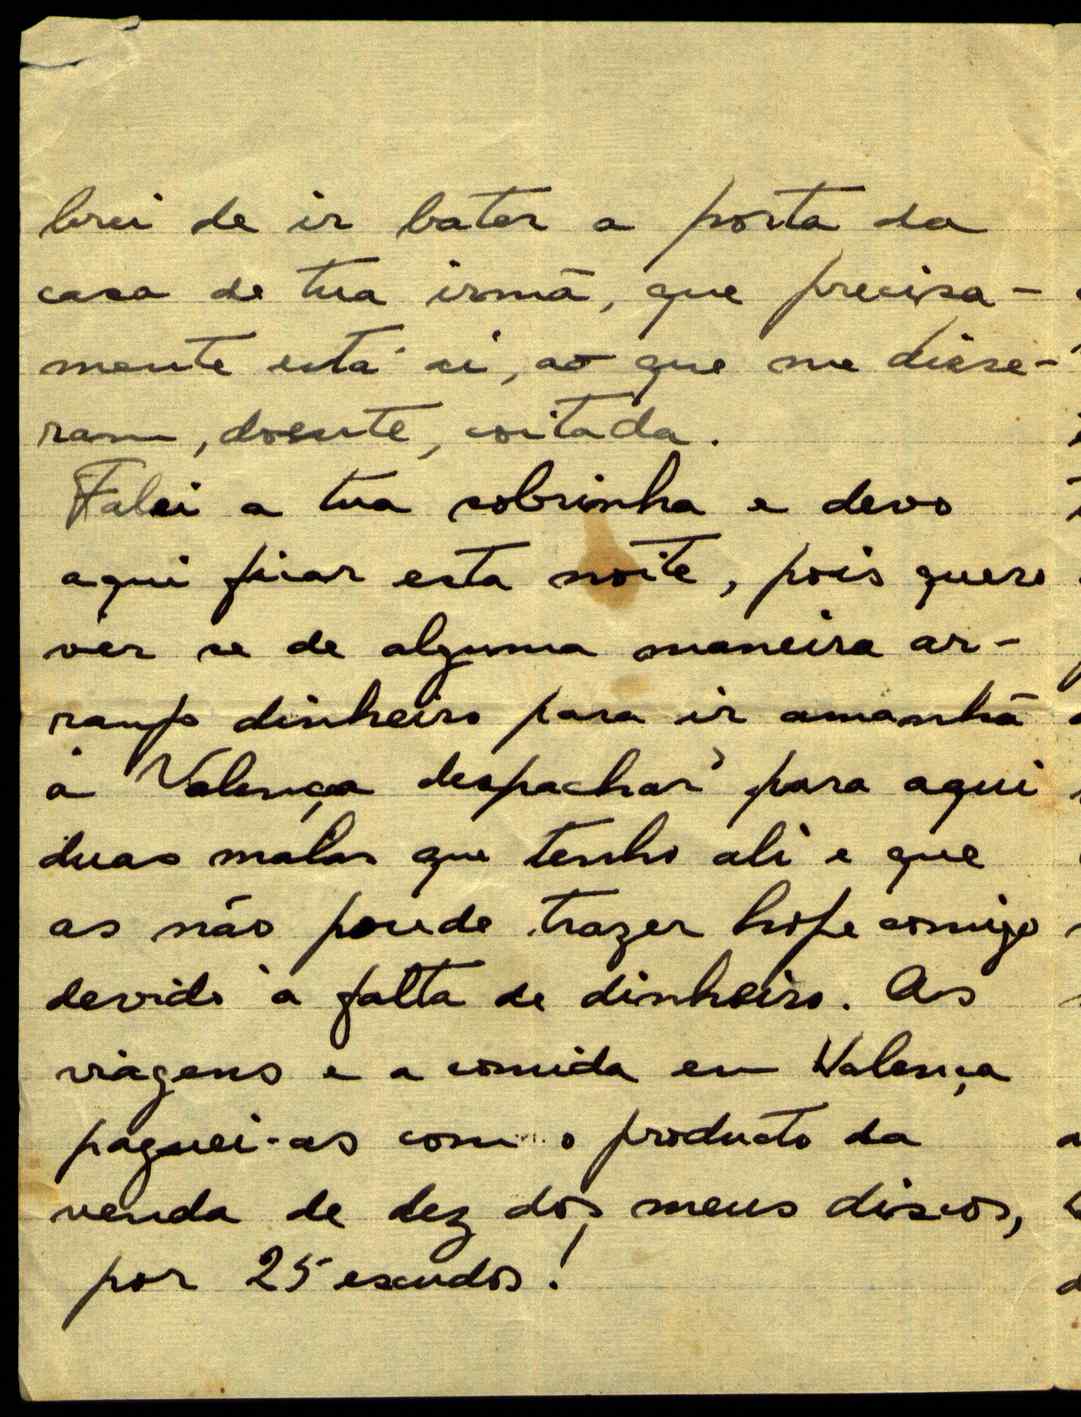 brei de ir bater a porta da
casa de tua irmã, que precisa-
mente está aí, ao que me disse-
ram, doente, coitada.
Falei a tua sobrinha e devo
aqui ficar esta noite, pois quero
ver se de alguma maneira ar-
ranjo dinheiro para ir amanhã
à Valença despachar para aqui
duas malas que tenho ali e que
as não poude trazer hoje comigo
devido à falta de dinheiro. As
viagens e a comida em Valença
paguei-as com o producto da
venda de dez dos meus discos,
por 25 escudos!